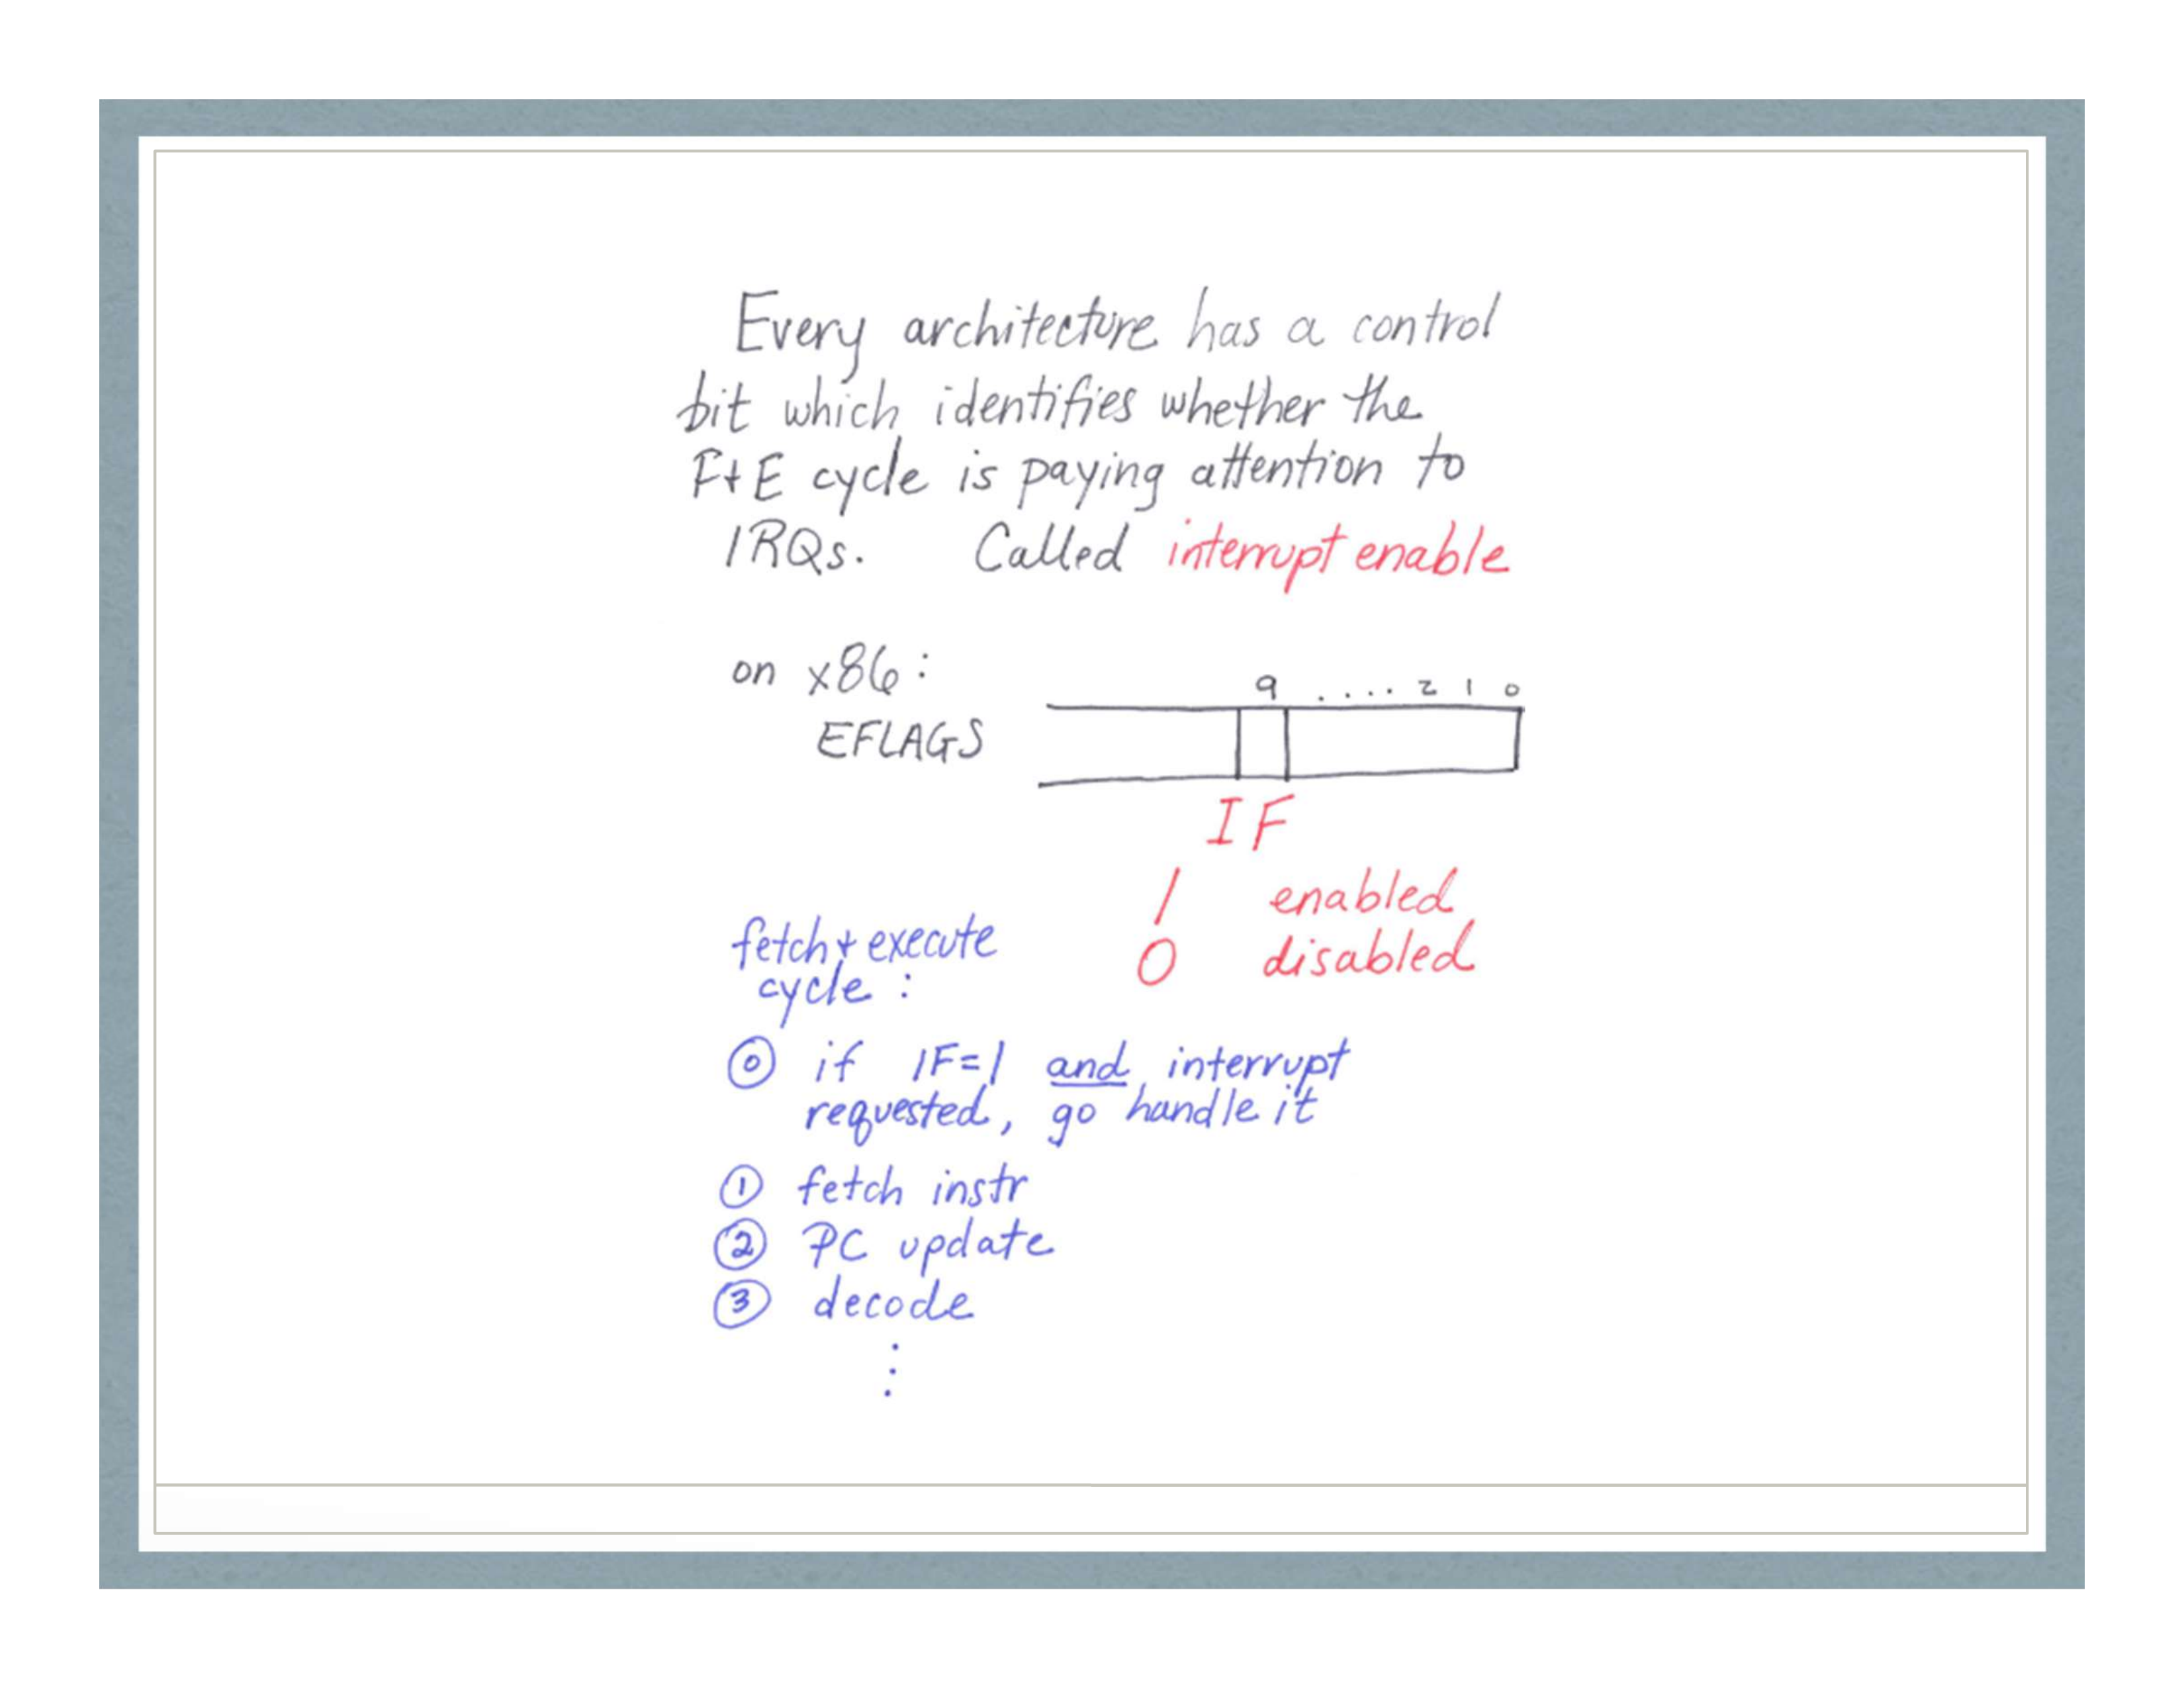 Every architecture has a control
bit which identifies whether the
F+E cycle is paying attention to
IRQs. Called interrupt enable
on x86:
9 .... 2 1 0
EFLAGS
IF
1 enabled
0 disabled
fetch + execute
cycle :
⓪ if IF=1 and interrupt
requested, go handle it
① fetch instr
② PC update
③ decode
⋮